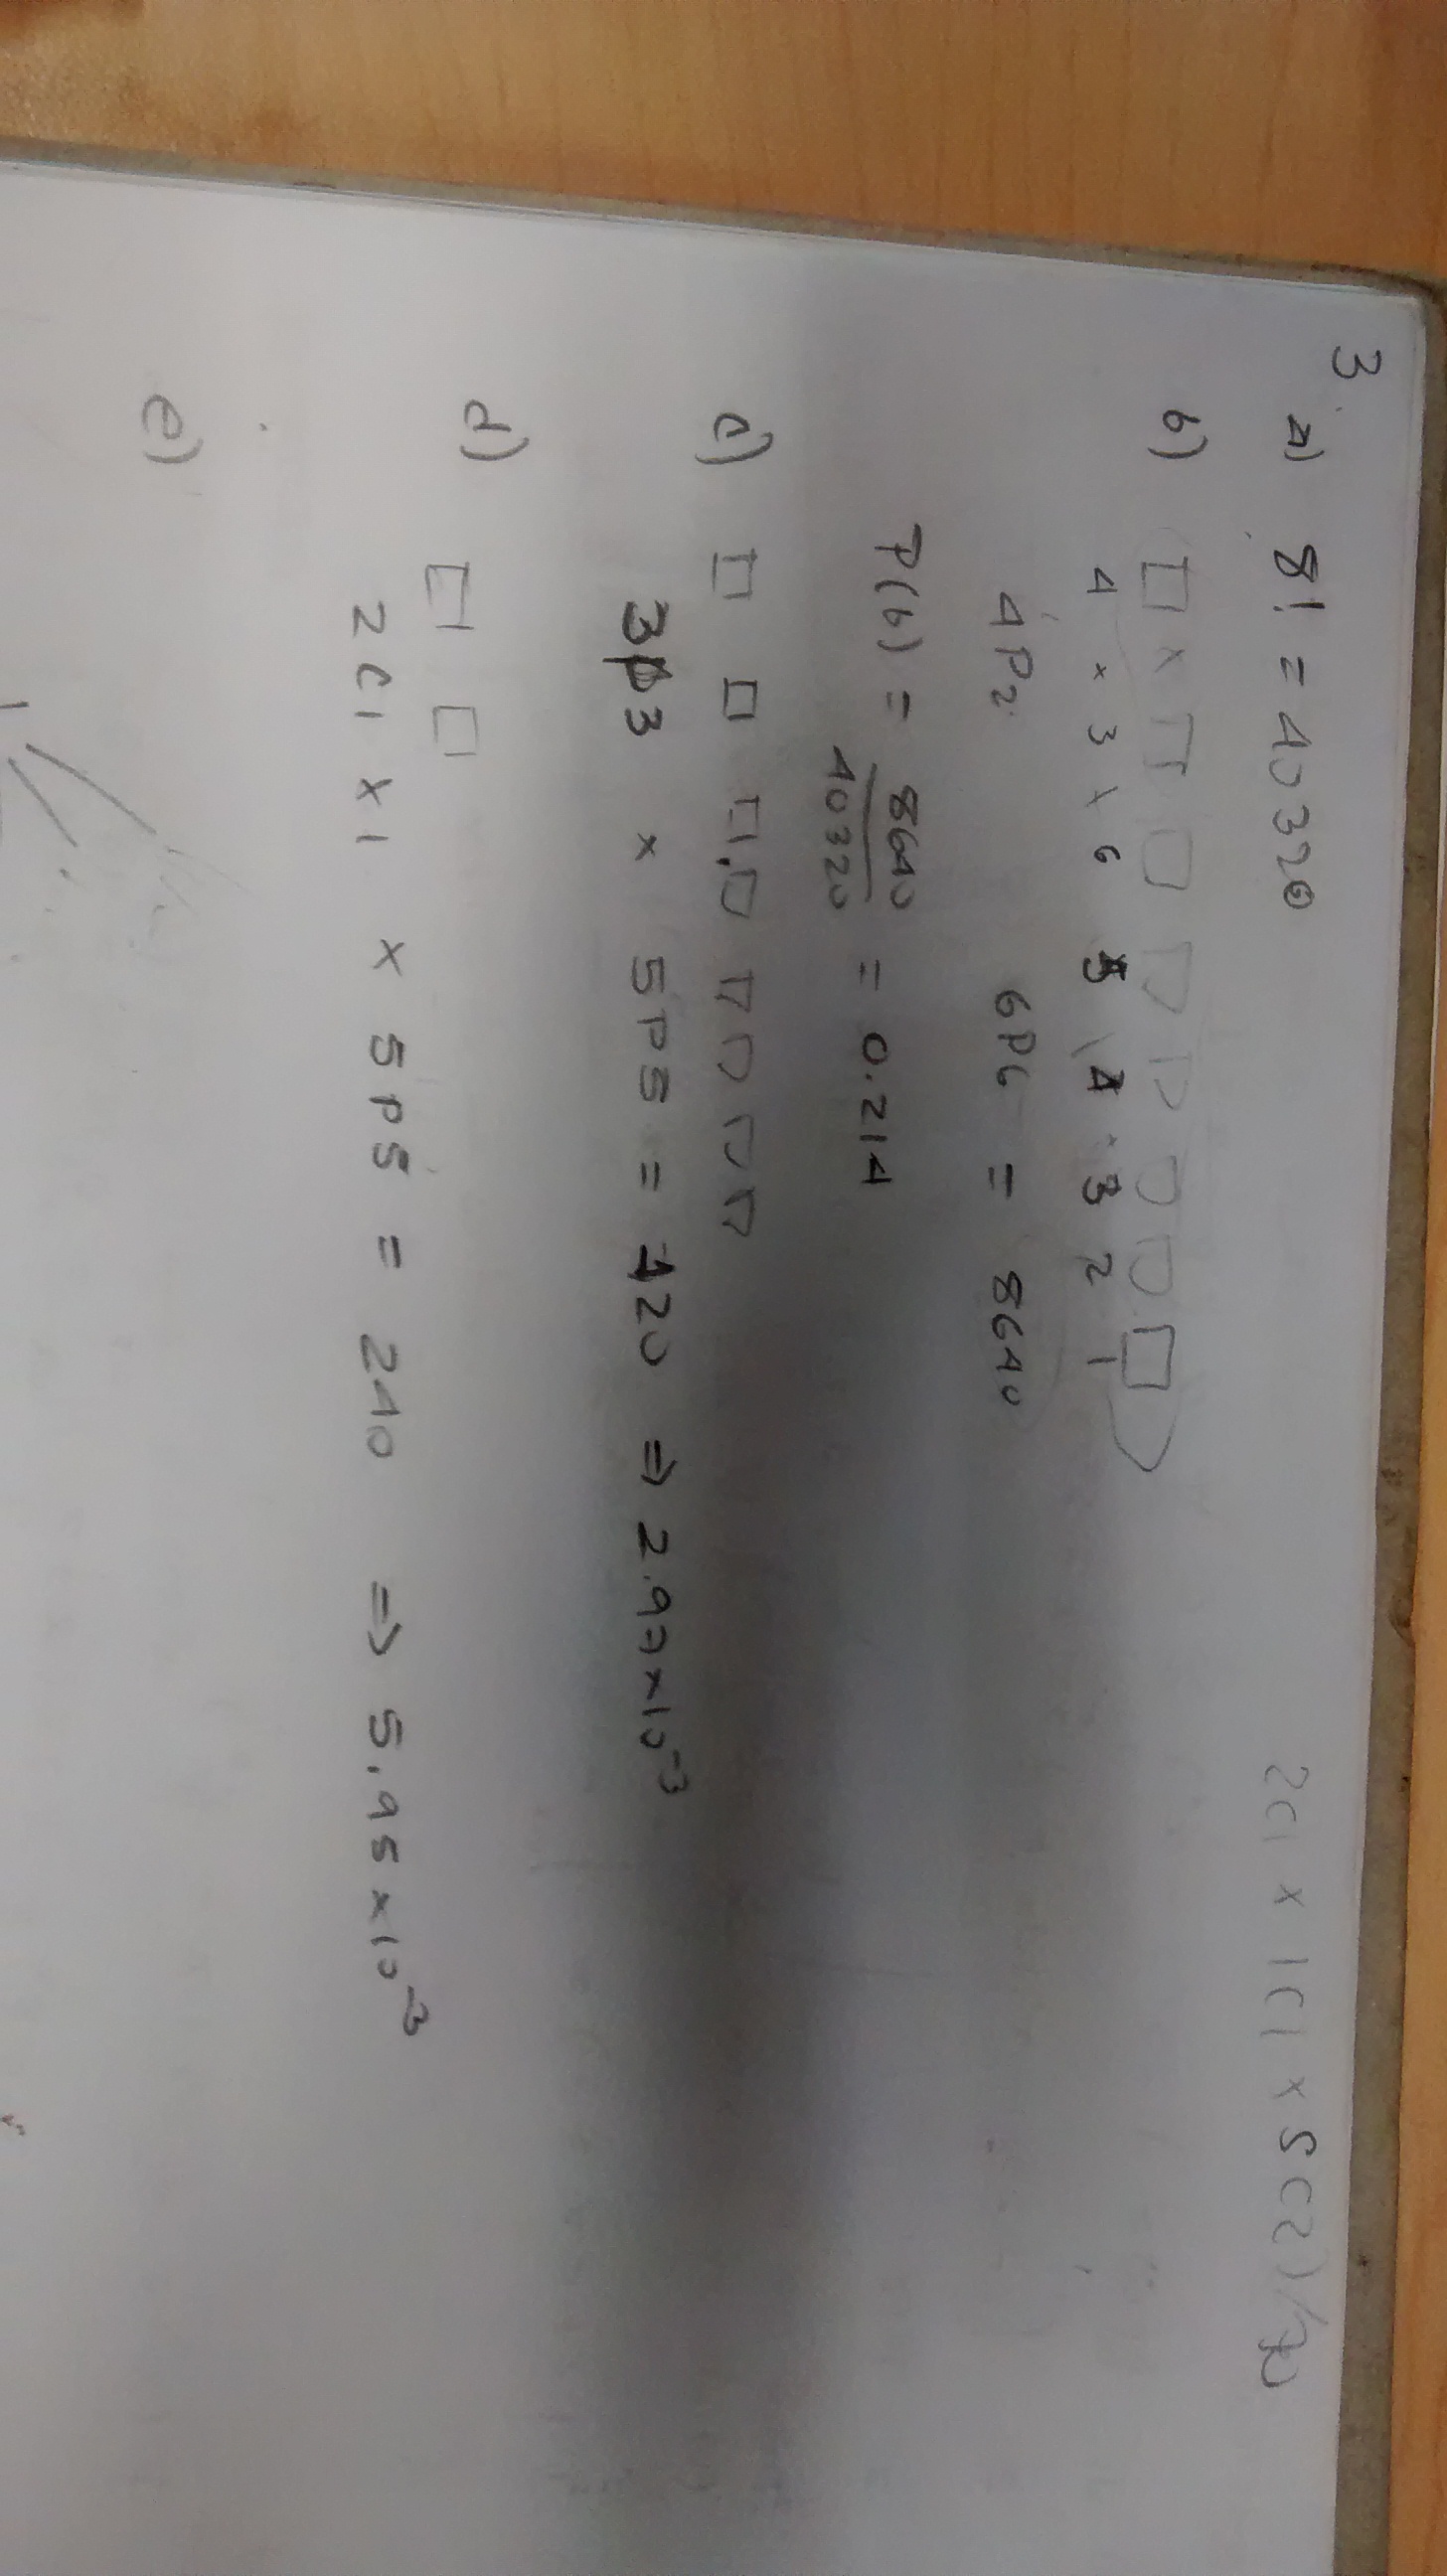 3. a) 8! = 40320
2C1 × 1C1 × 5C2) /
b) □ × □ □ □ □ □ □ □
4 × 3 × 6 5 4 3 2 1
4P2 6P6 = 8640
P(b) = 8640/40320 = 0.214
c) □ □ □, □ □ □ □ □
3 3 × 5P5 = 120 ⇒ 2.97×10⁻³
d) □ □
2C1 × 1 × 5P5 = 240 ⇒ 5.95×10⁻³
e)